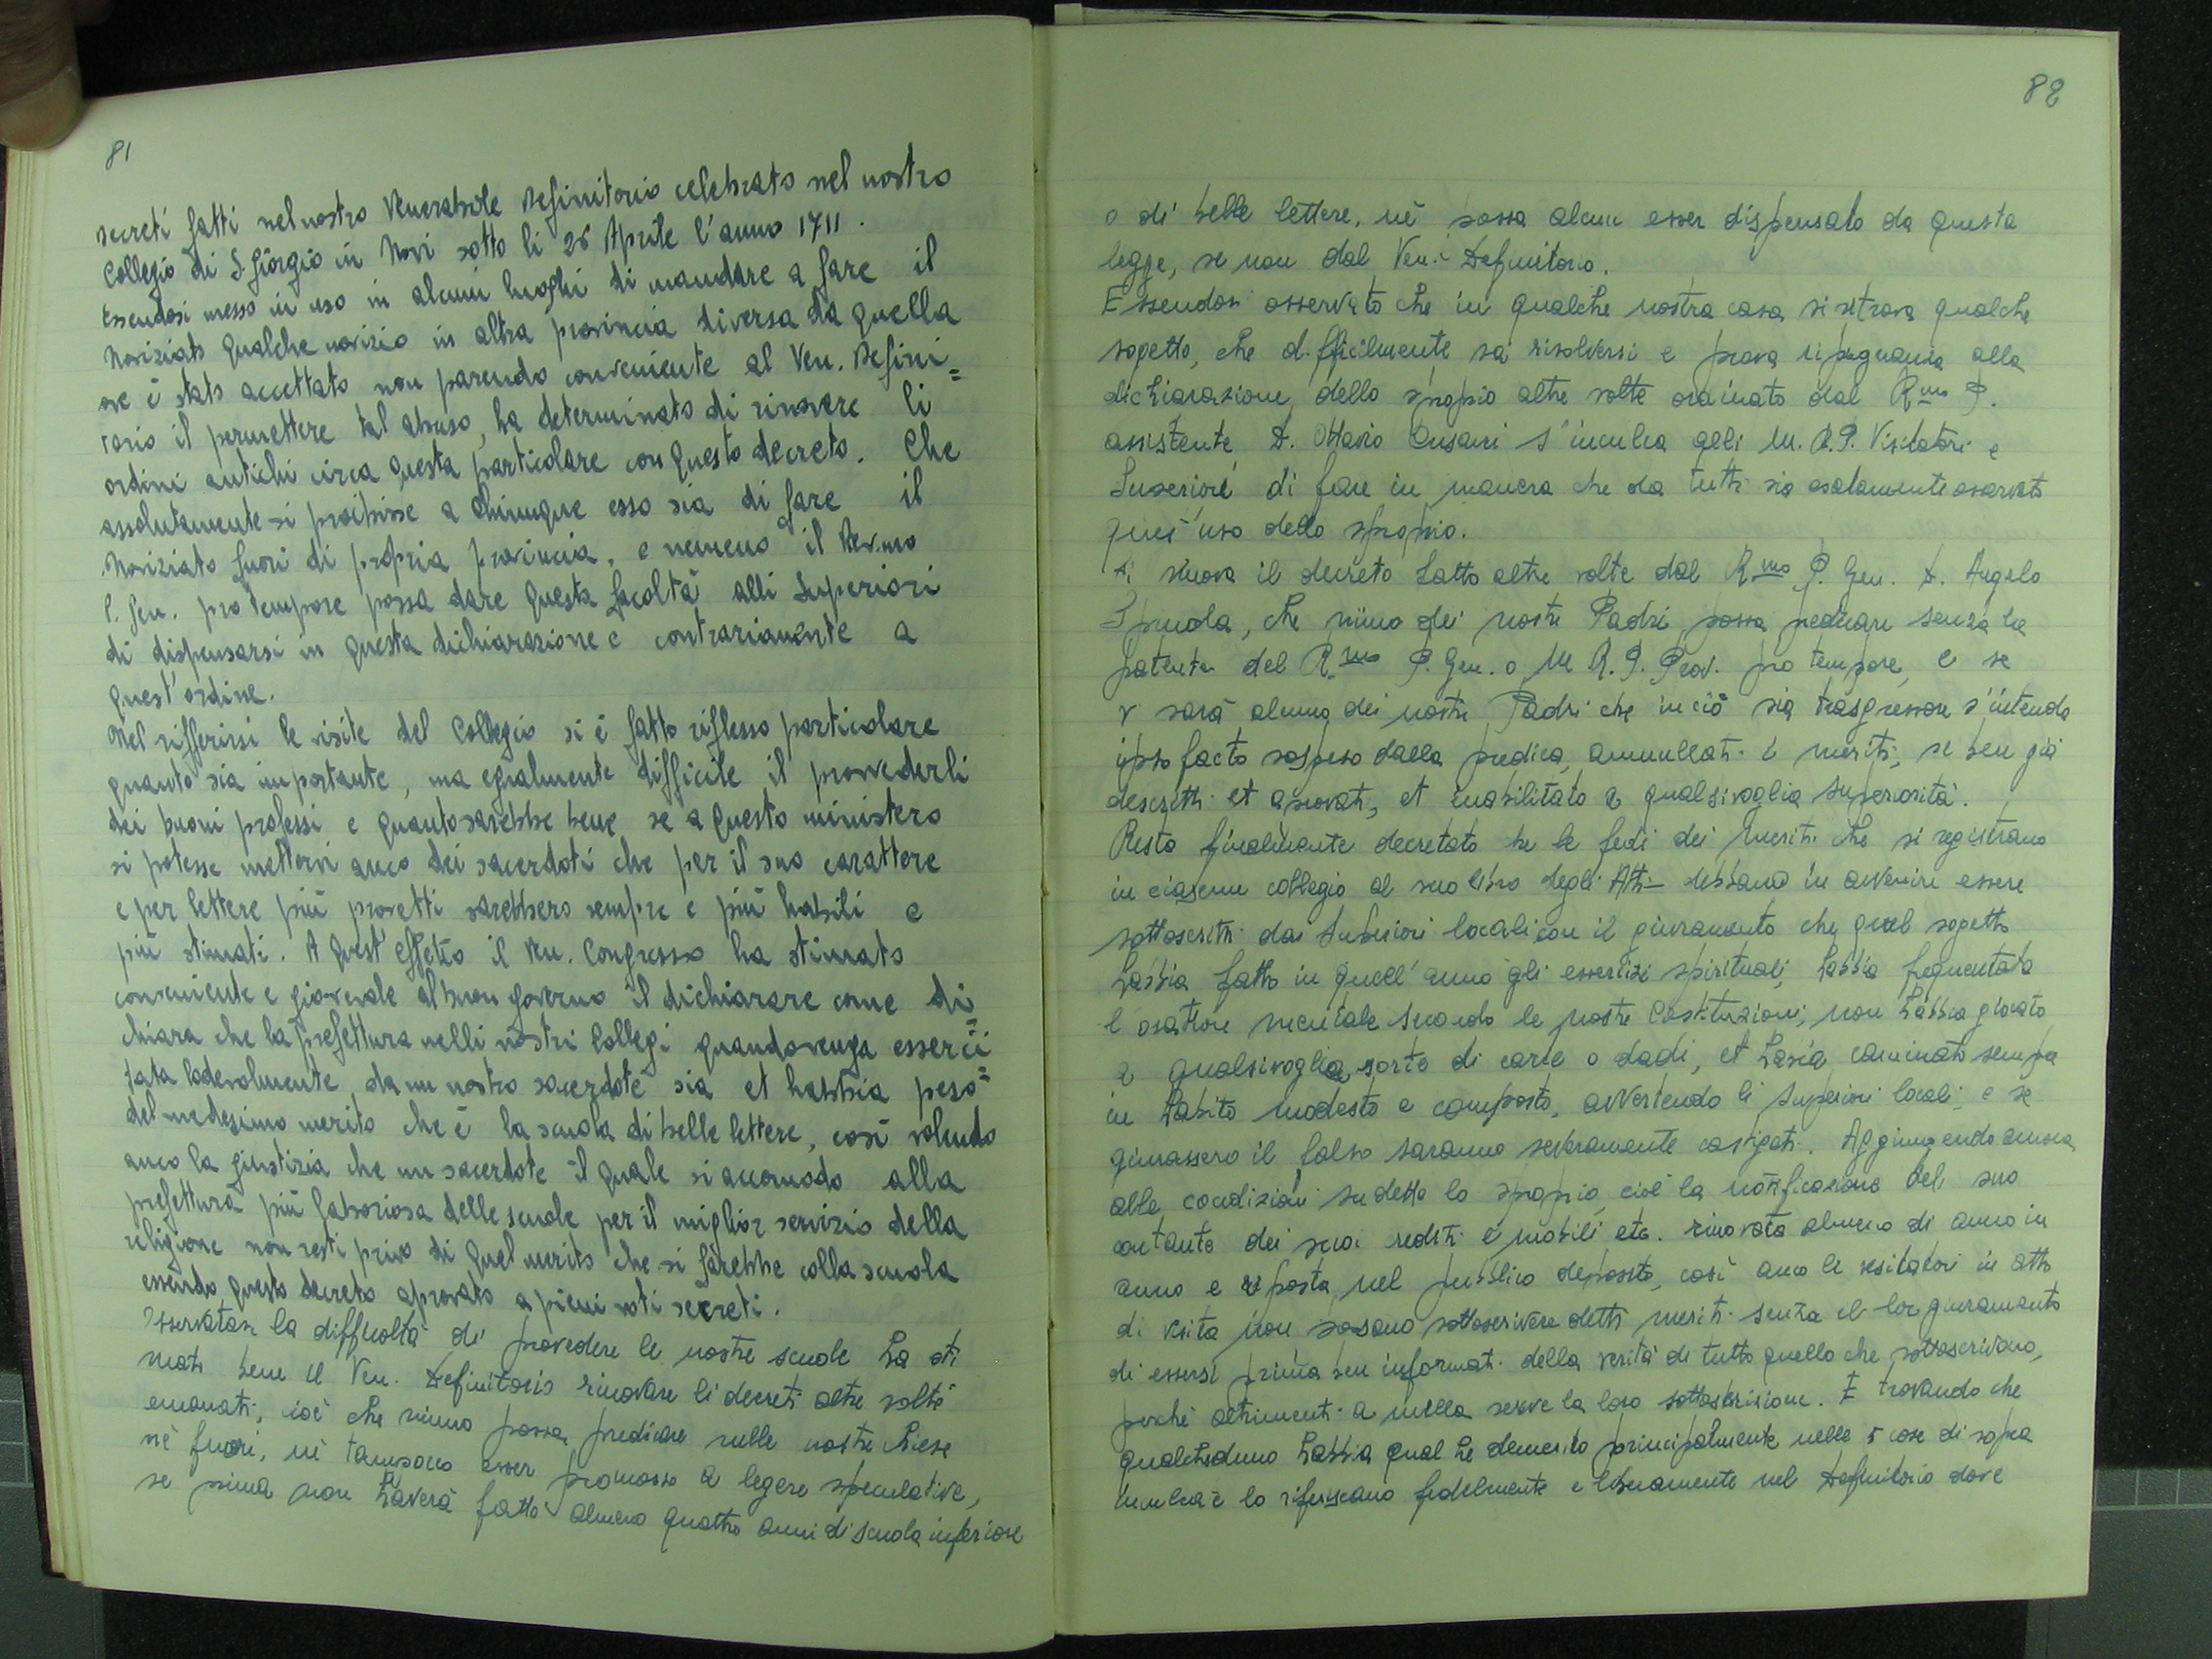 81
secreti fatti nel nostro Venerabile Definitorio celebrato nel nostro
Collegio di S. Giorgio in Novi sotto li 26 Aprile l'anno 1711.
Essendosi messo in uso in alcuni luoghi di mandare a fare il
Noviziato qualche novizio in altra provincia diversa da quella
ove è stato accettato non parendo conveniente al Ven. Defini=
torio il permettere tal abuso, ha determinato di rinovare li
ordini antichi circa questa particolare con questo decreto. Che
assolutamente si proibisse a chiunque esso sia di fare il
Noviziato fuori di propria provincia, e nemeno il Rev.mo
P. Gen. pro tempore possa dare questa facoltà alli Superiori
di dispensarsi in questa dichiarazione e contrariamente a
quest'ordine.
Nel rifferirsi le visite del Collegio si è fatto riflesso particolare
quanto sia importante, ma egualmente difficile il provvederli
dei buoni professi e quanto sarebbe bene se a questo ministero
si potesse mettervi anco dei sacerdoti che per il suo carattere
e per lettere più provetti sarebbero sempre e più habili e
più stimati. A quest'effetto il Ven. Congresso ha stimato
conveniente e giovevole al buon governo il dichiarare come di
chiara che la prefettura nelli nostri Collegi quando venga eserci=
tata lodevolmente da un nostro sacerdote sia et habbia peso=
del medesimo merito che è la scuola di belle lettere, così volendo
anco la giustizia che un sacerdote il quale si accomodo alla
prefettura più laboriosa delle scuole per il miglior servizio della
religione non resti privo di quel merito che si farebbe colla scuola
essendo questo decreto aprovato a pieni voti secreti.
Osservatasi la difficoltà di provedere le nostre scuole ha sti
mato bene il Ven. Definitorio rinovare li decreti altre volte
emanati, cioè che niuno possa predicare nelle nostre Chiese
nè fuori, nè tampoco esser promosso a legere speculative,
se prima non haverà fatto almeno quattro anni di scuola inferiore
82
o di belle lettere, nè possa alcun esser dispensato da questa
legge, se non dal Ven. Definitorio.
Essendosi osservato che in qualche nostra casa si ritrova qualche
sogetto, che difficilmente sa risolversi e prova ripugnanza alla
dichiarazione dello spropio altre volte ordinato dal R.mo P.
assistente D. Ottavio Cusani s'inculca alli M. R. P. Visitatori e
Superiori di fare in maniera che da tutti sia esatamente osservato
quest'uso dello spropio.
Si rinova il decreto fatto altre volte dal R.mo P. Gen. D. Angelo
Spinola, che niuno dei nostri Padri possa predicare senza la
patente del R.mo P. Gen. o M. R. P. Prov. pro tempore, e se
vi sarà alcuno dei nostri Padri che in ciò sia trasgressore s'intenda
ipso facto sospeso dalla predica, annullati i meriti, se ben già
descritti et aprovati, et inabilitato a qualsivoglia superiorità.
Resta finalmente decretato che le fedi dei meriti che si registrano
in ciascun collegio al suo libro degli Atti debbano in avvenire essere
sottoscritti dai Superiori locali con il giuramento che quel sogetto
habbia fatto in quell'anno gli essercizi spirituali, habbia frequentata
l'orazione mentale secondo le nostre Costituzioni, non habbia giocato
a qualsivoglia sorte di carte o dadi, et habia caminato sempre
in habito modesto e composto, avvertendo li Superiori locali, e se
giurassero il falso saranno severamente castigati. Aggiungendo ancora
alle condizioni sudette lo spropio, cioè la notificazione del suo
contante dei suoi rediti e mobili etc. rinovata almeno di anno in
anno e riposta nel publico deposito, così anco le visitatori in atto
di visita non possano sottoscrivere detti meriti senza il lor giuramento
di essersi prima ben informati della verità di tutto quello che sottoscrivono,
perchè altrimenti a nulla serve la loro sottoscrizione. E trovando che
qualcheduno habbia qualche demerito principalmente nelle 5 cose di sopra
inculcate lo riferiscano fedelmente e liberamente nel Definitorio dove